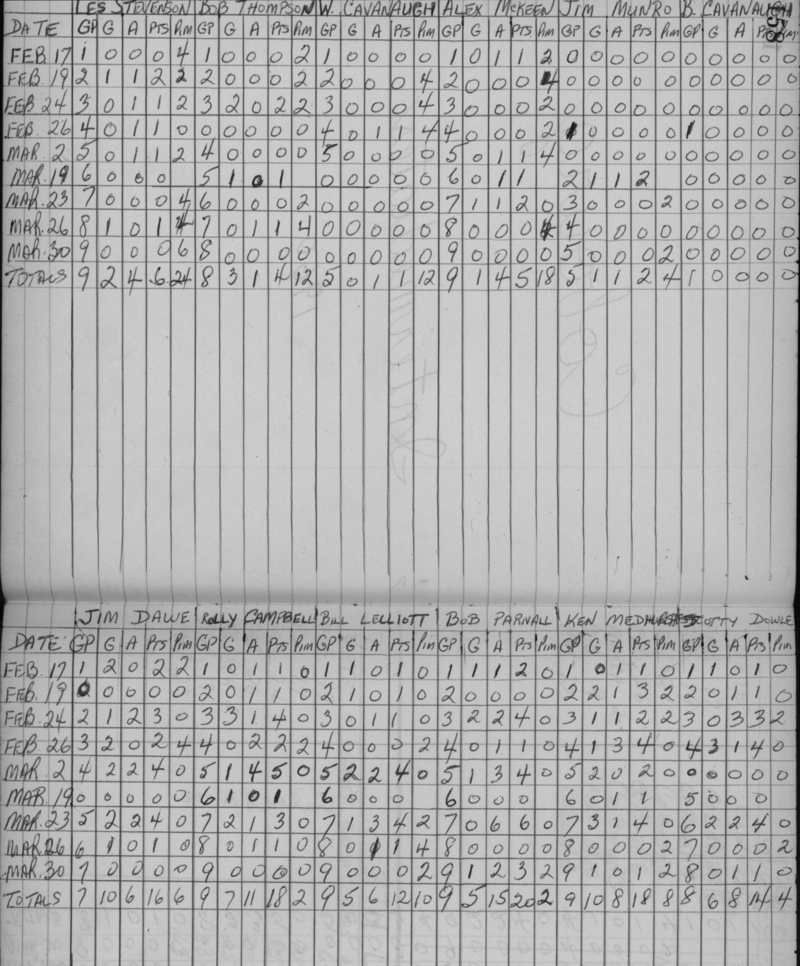 LES STEVENSON BOB THOMPSON W. CAVANAUGH ALEX McKEEN JIM MUNRO B. CAVANAUGH
DATE GP G A Pts Pim GP G A Pts Pim GP G A Pts Pim GP G A Pts Pim GP G A Pts Pim GP G A Pts Pim
FEB 17 1 0 0 0 4 1 0 0 0 2 1 0 0 0 0 1 0 1 1 2 0 0 0 0 0 0 0 0 0 0
FEB. 19 2 1 1 2 2 2 0 0 0 2 2 0 0 0 4 2 0 0 0 4 0 0 0 0 0 0 0 0 0 0
FEB 24 3 0 1 1 2 3 2 0 2 2 3 0 0 0 4 3 0 0 0 2 0 0 0 0 0 0 0 0 0 0
FEB. 26 4 0 1 1 0 0 0 0 0 0 4 0 1 1 4 4 0 0 0 2 1 0 0 0 0 1 0 0 0 0
MAR. 2 5 0 1 1 2 4 0 0 0 0 5 0 0 0 0 5 0 1 1 4 0 0 0 0 0 0 0 0 0 0
MAR. 19 6 0 0 0 5 1 0 1 0 0 0 0 0 6 0 1 1 2 1 1 2 0 0 0 0
MAR. 23 7 0 0 0 4 6 0 0 0 2 0 0 0 0 0 7 1 1 2 0 3 0 0 0 2 0 0 0 0 0
MAR. 26 8 1 0 1 4 7 0 1 1 4 0 0 0 0 0 8 0 0 0 4 4 0 0 0 0 0 0 0 0 0
MAR. 30 9 0 0 0 6 8 0 0 0 0 0 0 0 0 0 9 0 0 0 0 5 0 0 0 2 0 0 0 0 0
TOTALS 9 2 4 6 24 8 3 1 4 12 5 0 1 1 12 9 1 4 5 18 5 1 1 2 4 1 0 0 0 0
JIM DAWE ROLLY CAMPBELL BILL LELLIOTT BOB PARNALL KEN OTTY DOWLE
DATE GP G A Pts Pim GP G A Pts Pim GP G A Pts Pim GP G A Pts Pim GP G A Pts Pim GP G A Pts Pim
FEB. 17 1 2 0 2 2 1 0 1 1 0 1 1 0 1 0 1 1 1 2 0 1 0 1 1 0 1 1 0 1 0
FEB. 19 0 0 0 0 0 2 0 1 1 0 2 1 0 1 0 2 0 0 0 0 2 2 1 3 2 2 0 1 1 0
FEB. 24 2 1 2 3 0 3 3 1 4 0 3 0 1 1 0 3 2 2 4 0 3 1 1 2 2 3 0 3 3 2
FEB 26 3 2 0 2 4 4 0 2 2 2 4 0 0 0 2 4 0 1 1 0 4 1 3 4 0 4 3 1 4 0
MAR. 2 4 2 2 4 0 5 1 4 5 0 5 2 2 4 0 5 1 3 4 0 5 2 0 2 0 0 0 0 0 0
MAR. 19 0 0 0 0 0 6 1 0 1 6 0 0 0 6 0 0 0 6 0 1 1 5 0 0 0
MAR. 23 5 2 2 4 0 7 2 1 3 0 7 1 3 4 2 7 0 6 6 0 7 3 1 4 0 6 2 2 4 0
MAR 26 6 1 0 1 0 8 0 1 1 0 8 0 1 1 4 8 0 0 0 0 8 0 0 0 2 7 0 0 0 2
MAR. 30 7 0 0 0 0 9 0 0 0 0 9 0 0 0 2 9 1 2 3 2 9 1 0 1 2 8 0 1 1 0
TOTALS 7 10 6 16 6 9 7 11 18 2 9 5 6 12 10 9 5 15 20 2 9 10 8 18 8 8 6 8 14 4